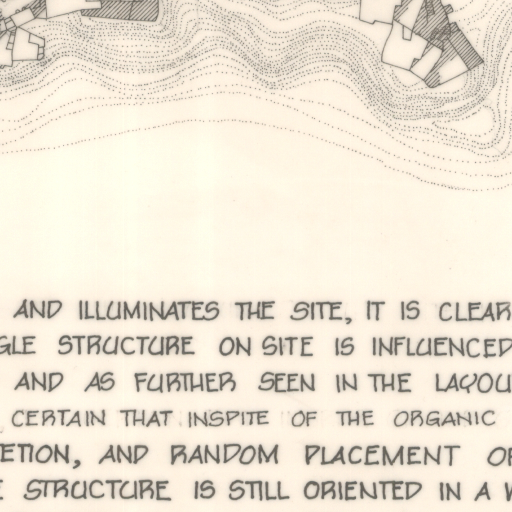 AND ILLUMINATES THE SITE, IT IS CLEAR
GLE STRUCTURE ON SITE IS INFLUENCED
AND AS FURTHER SEEN IN THE LAYOU
CERTAIN THAT INSPITE OF THE ORGANIC
ETION, AND RANDOM PLACEMENT OF
E STRUCTURE IS STILL ORIENTED IN A W